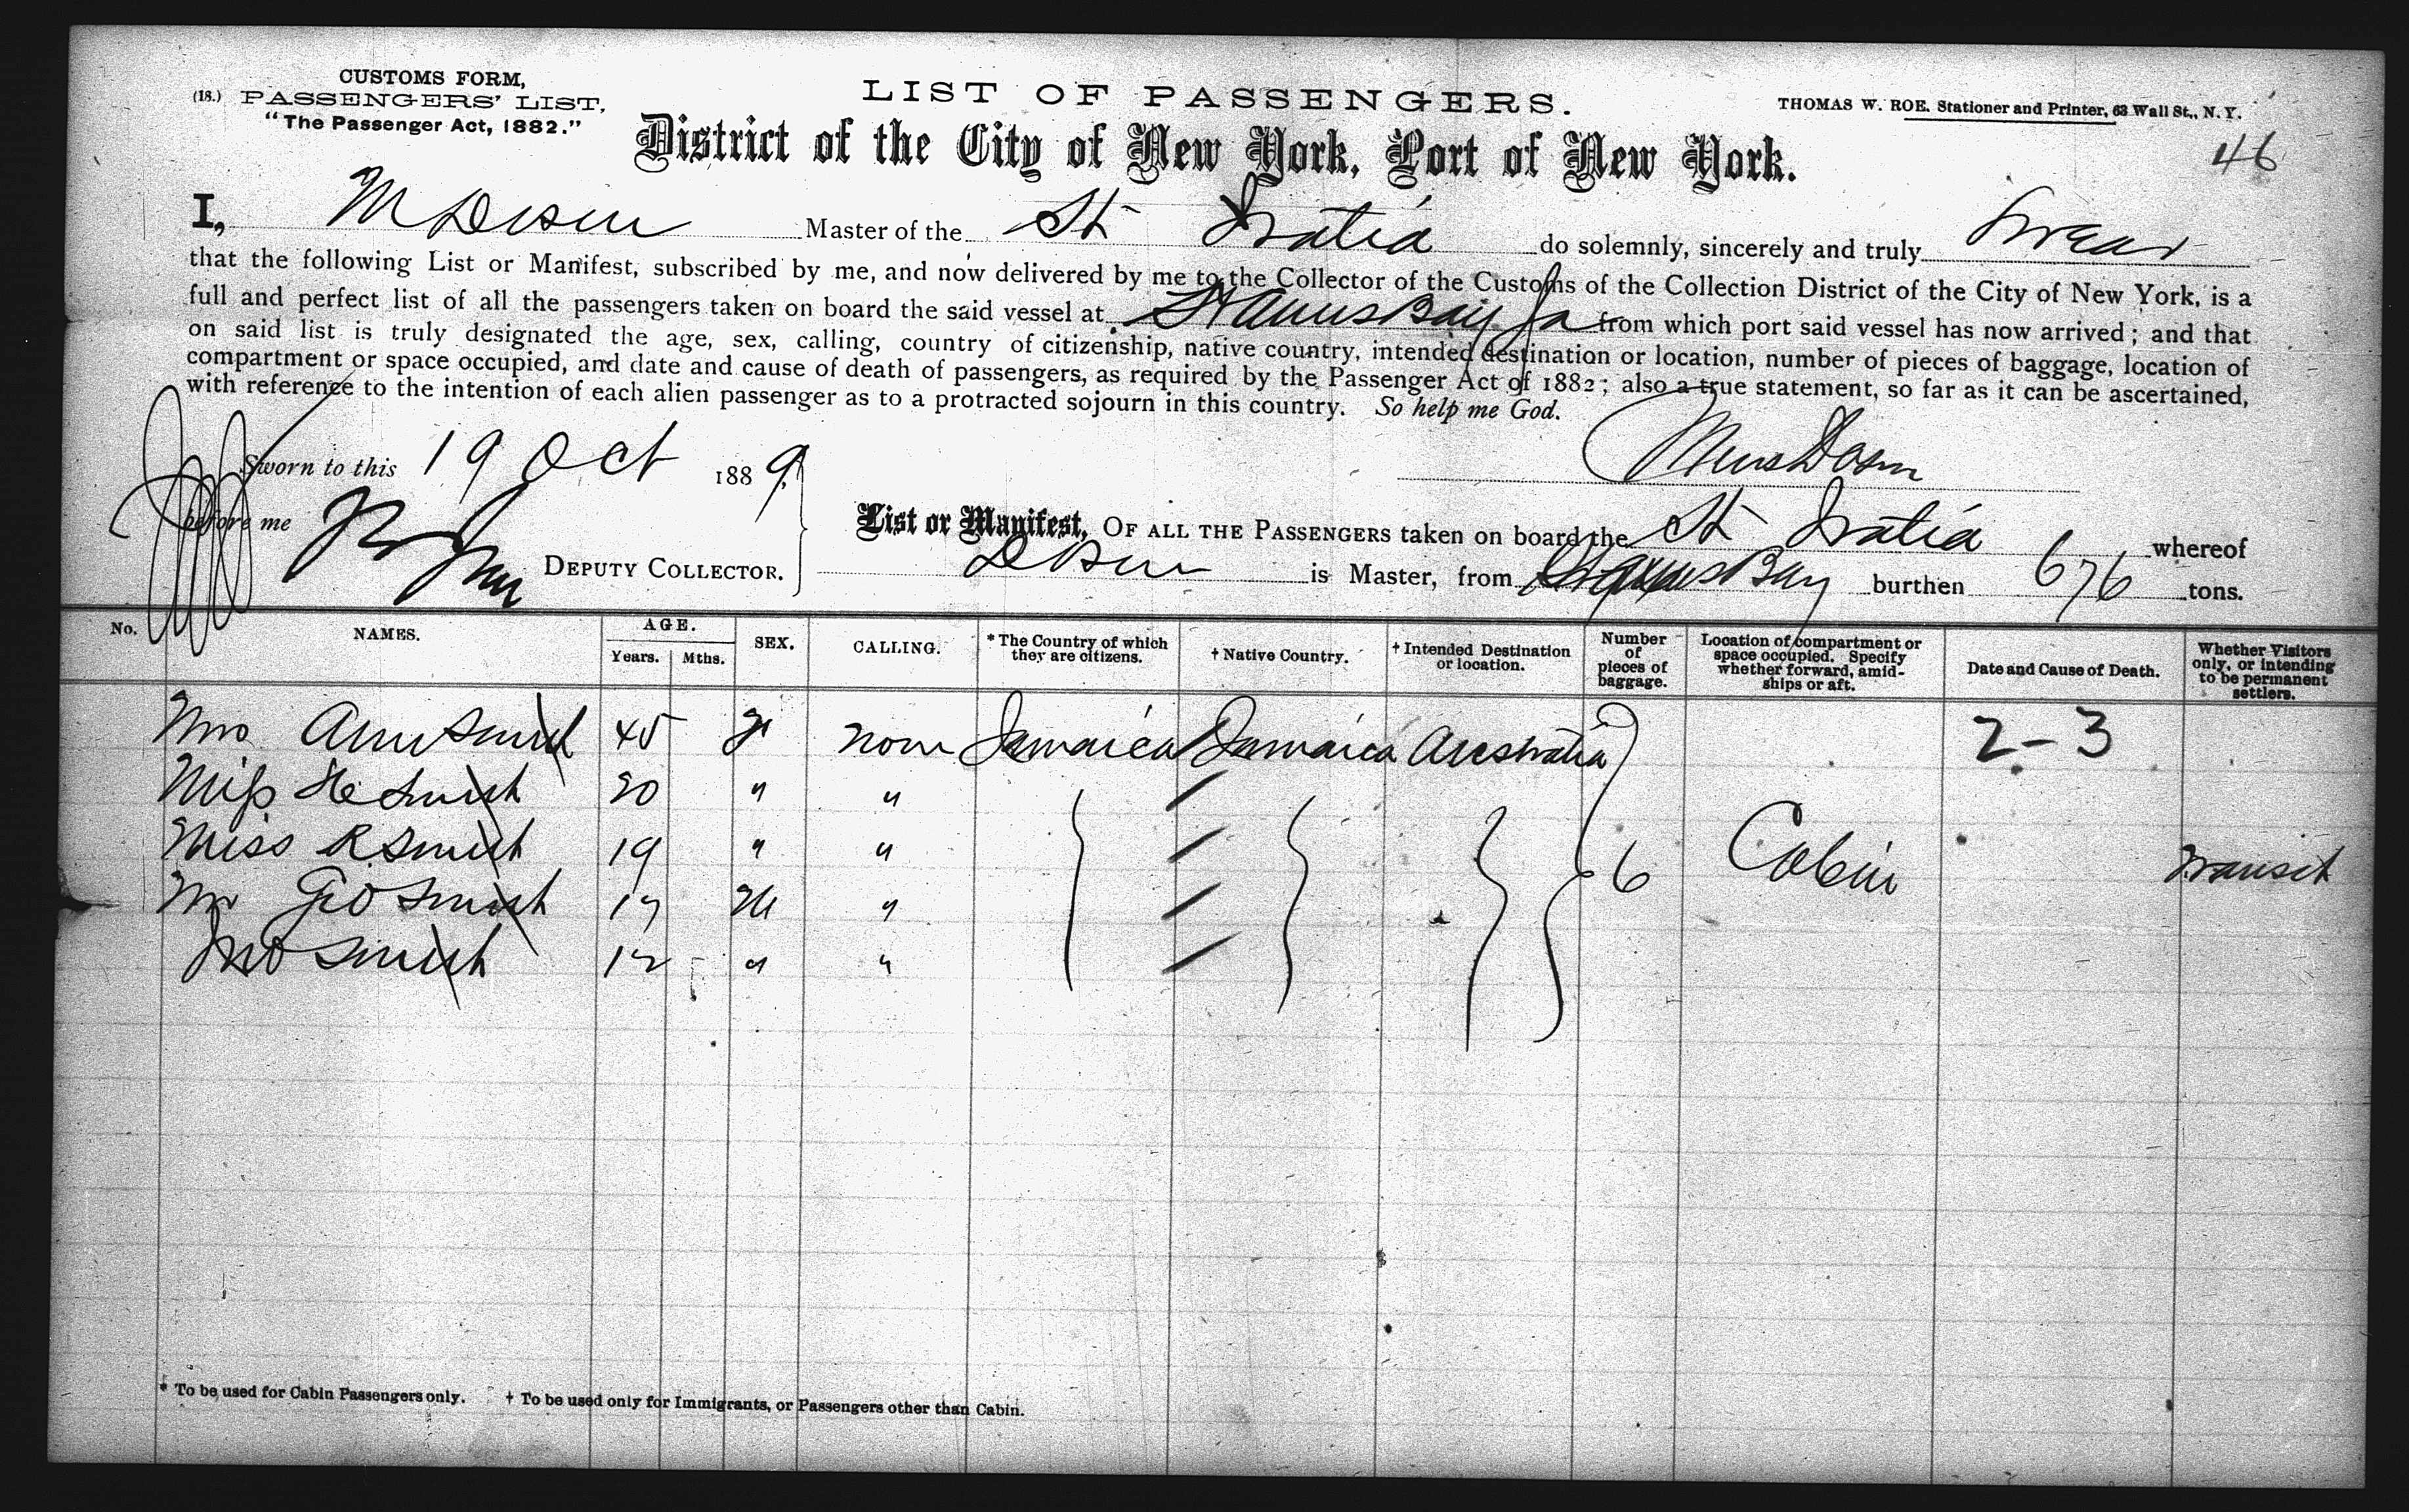 CUSTOMS FORM,
(18.) PASSENGERS' LIST,
"The Passenger Act, 1882."
LIST OF PASSENGERS.
THOMAS W. ROE, Stationer and Printer, 63 Wall St., N. Y.
District of the City of New York, Port of New York.
46
I, Master of the do solemnly, sincerely and truly swear
that the following List or Manifest, subscribed by me, and now delivered by me to the Collector of the Customs of the Collection District of the City of New York, is a
full and perfect list of all the passengers taken on board the said vessel at St Anns Bay Ja from which port said vessel has now arrived; and that
on said list is truly designated the age, sex, calling, country of citizenship, native country, intended destination or location, number of pieces of baggage, location of
compartment or space occupied, and date and cause of death of passengers, as required by the Passenger Act of 1882; also a true statement, so far as it can be ascertained,
with reference to the intention of each alien passenger as to a protracted sojourn in this country. So help me God.
Sworn to this 19 Oct 1889
before me
DEPUTY COLLECTOR.
List or Manifest, OF ALL THE PASSENGERS taken on board the whereof
is Master, from St Anns Bay burthen 676 tons.
No. NAMES. AGE. Years. Mths. SEX. CALLING. * The Country of which they are citizens. † Native Country. † Intended Destination or location. Number of pieces of baggage. Location of compartment or space occupied. Specify whether forward, amidships or aft. Date and Cause of Death. Whether Visitors only, or intending to be permanent settlers.
Mrs Ann Smith 45 F none Jamaica Jamaica Australia 2-3
Miss He Smith 20 " "
Miss R Smith 19 " " 6 Cabin Transit
Mr Geo Smith 17 M "
Jno Smith 12 " "
* To be used for Cabin Passengers only. † To be used only for Immigrants, or Passengers other than Cabin.